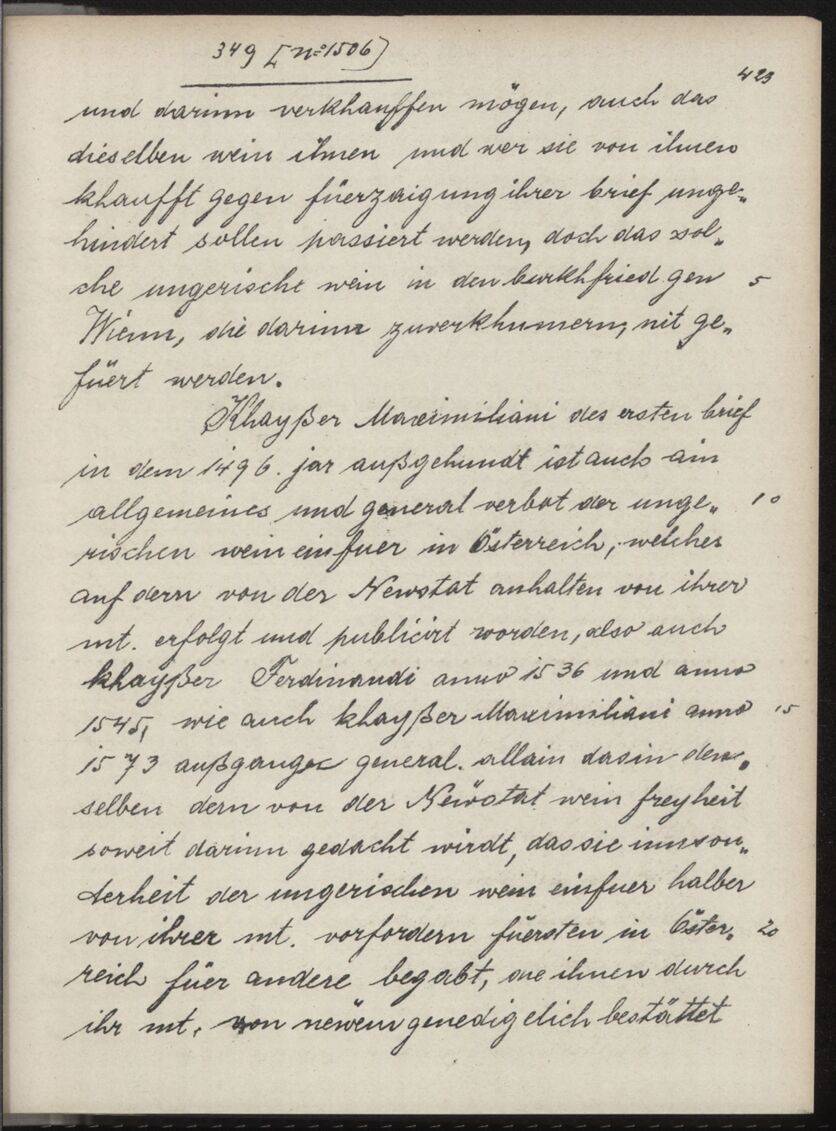 349 [nº 1506]
423
und darinn verkhauffen mögen, auch das
dieselben wein ihnen und wer sie von ihnen
khaufft gegen füerzaigung ihrer brief unge„
hindert sollen passiert werden, doch das sol„
che ungerische wein in den burkhfried gen 5
Wienn, die darinn zuverkhumern, nit ge„
füert werden.
Khayßer Maximiliani des ersten brief
in dem 1496. jar außgehundt ist auch ain
allgemeines und general verbot der unge„ 10
rischen wein einfuer in Österreich, welches
auf dern von der Newstat anhalten von ihrer
mt. erfolgt und publicirt worden, also auch
khayßer Ferdinandi anno 1536 und anno
1545, wie auch khayßer Maximiliani anno 15
1573 außgangec general. allain das in den„
selben dern von der Newstat wein freyheit
soweit darinn gedacht wirdt, das sie innson„
derheit der ungerischen wein einfuer halber
von ihrer mt. vorfordern füersten in Öster„ 20
reich füer andere begabt, die ihnen durch
ihr mt. von newem genedigelich bestättet